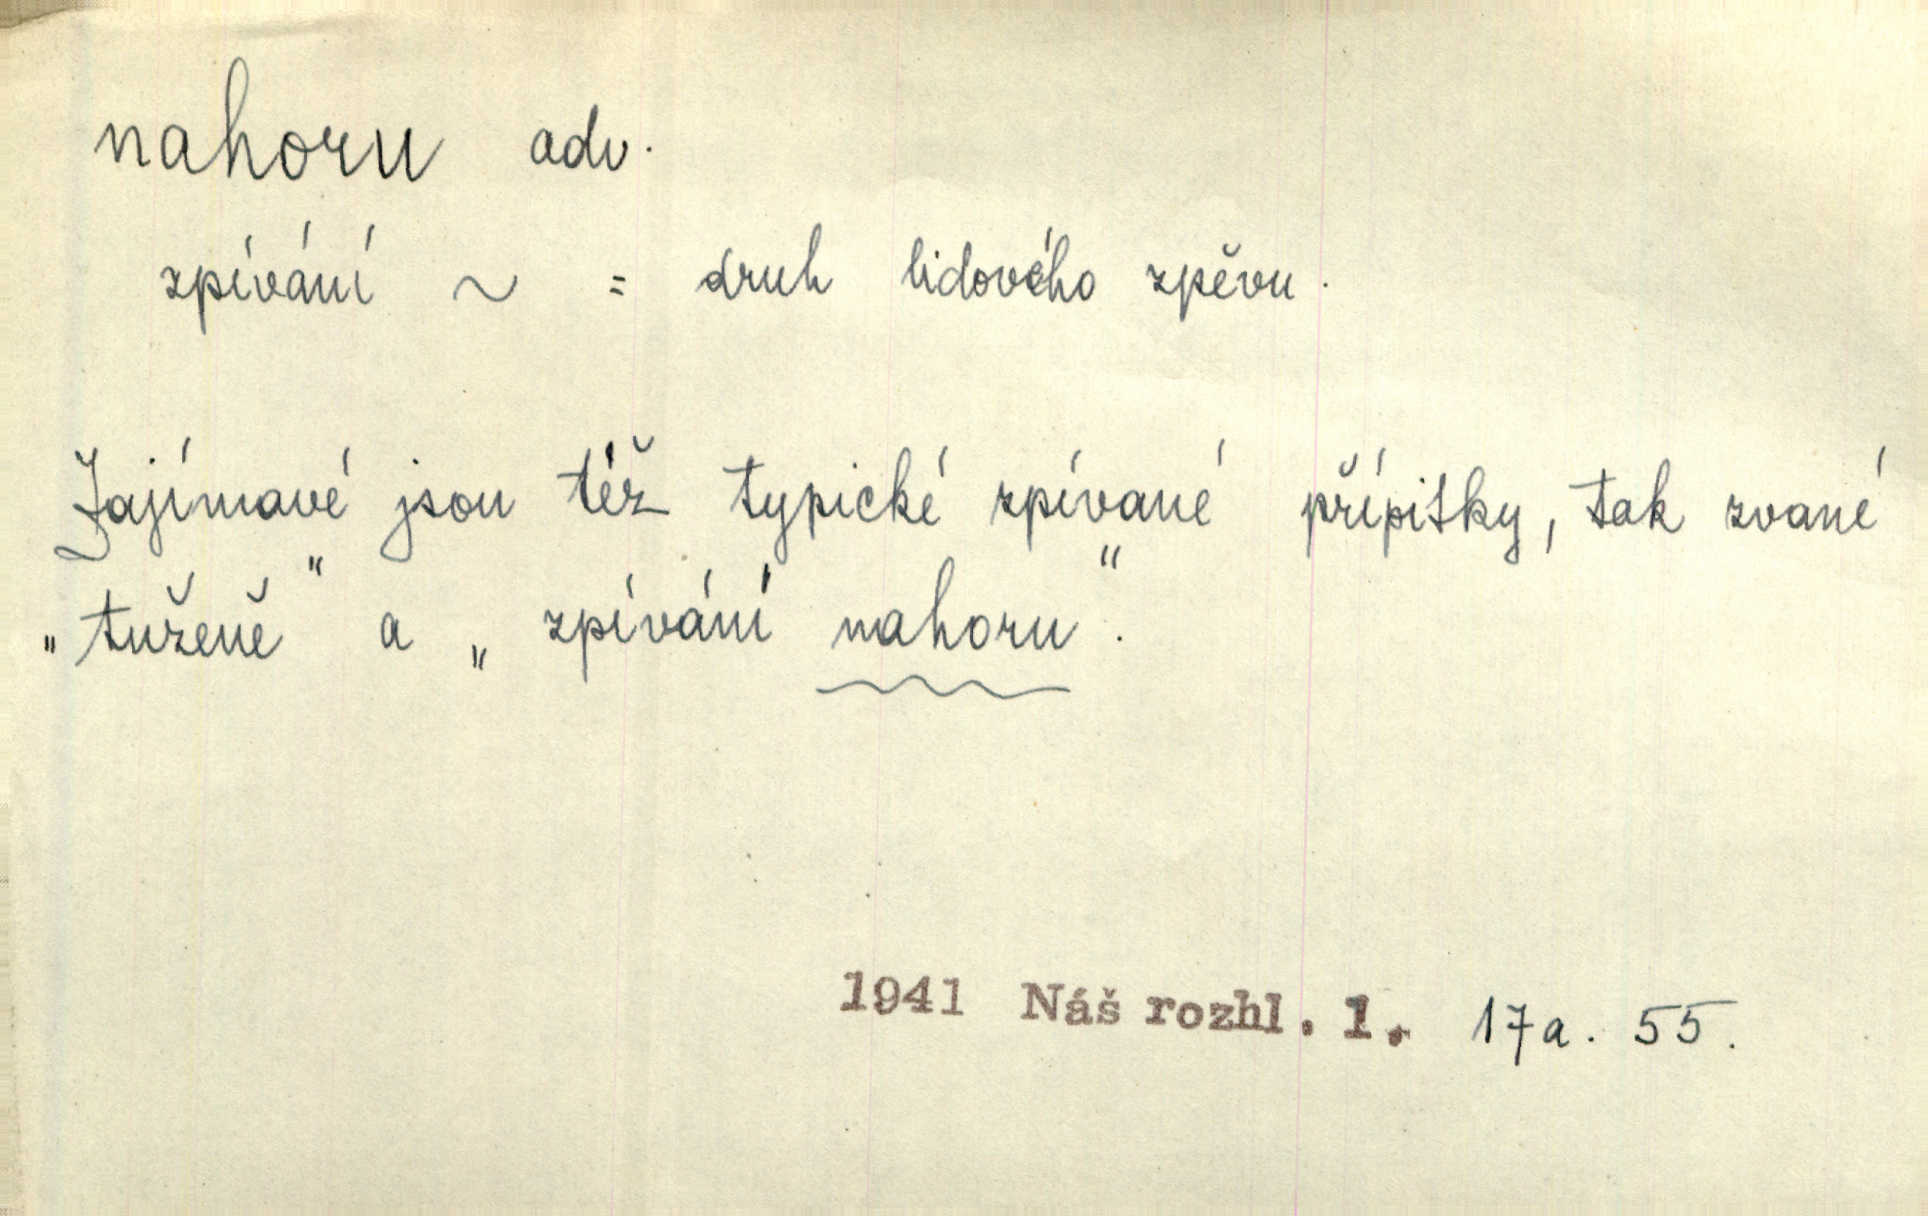 nahoru adv.
zpívání ~ = druh lidového zpěvu.
Zajímavé jsou též typické zpívané přípitky, tak zvané
„tuženě" a „zpívání nahoru".
1941 Náš rozhl. 1. 17a. 55.